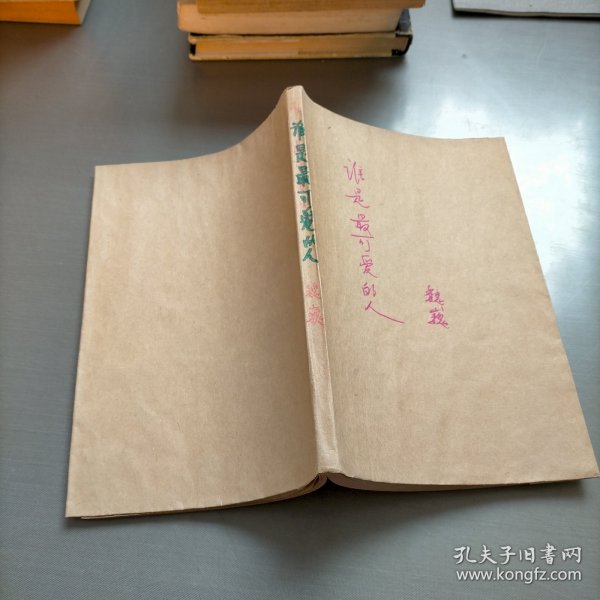 谁是最可爱的人
魏巍
谁是最可爱的人
魏巍
孔夫子旧书网
www.kongfz.com